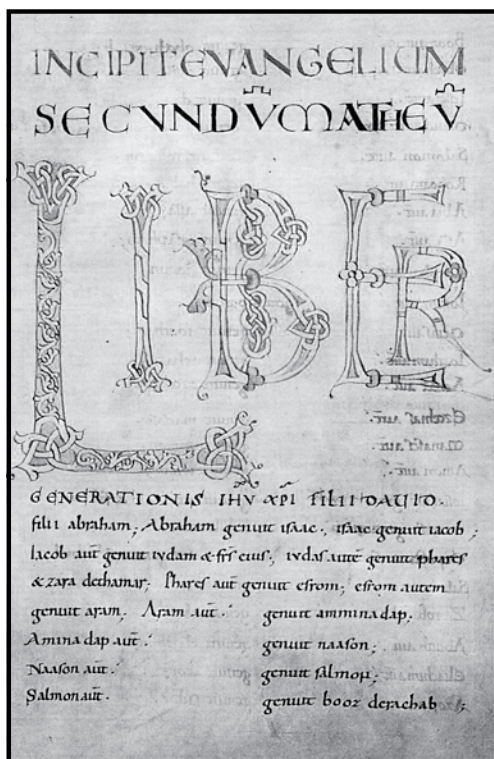 INCIPIT EVANGELIUM
SECUNDŪ MATHEŪ
LIBER
GENERATIONIS IHŪ XP̄I FILII DAVID.
filii abraham; Abraham genuit isaac, isaac genuit iacob;
Iacob aut̄ genuit iudam & frs̄ eius; iudas autē genuit phares
& zara dethamar; Phares aut̄ genuit esrom; esrom autem
genuit aram; Aram aut̄. genuit amminadap.
Aminadap aut̄. genuit naason;
Naason aut̄. genuit salmon;
Salmon aut̄. genuit booz derachab;